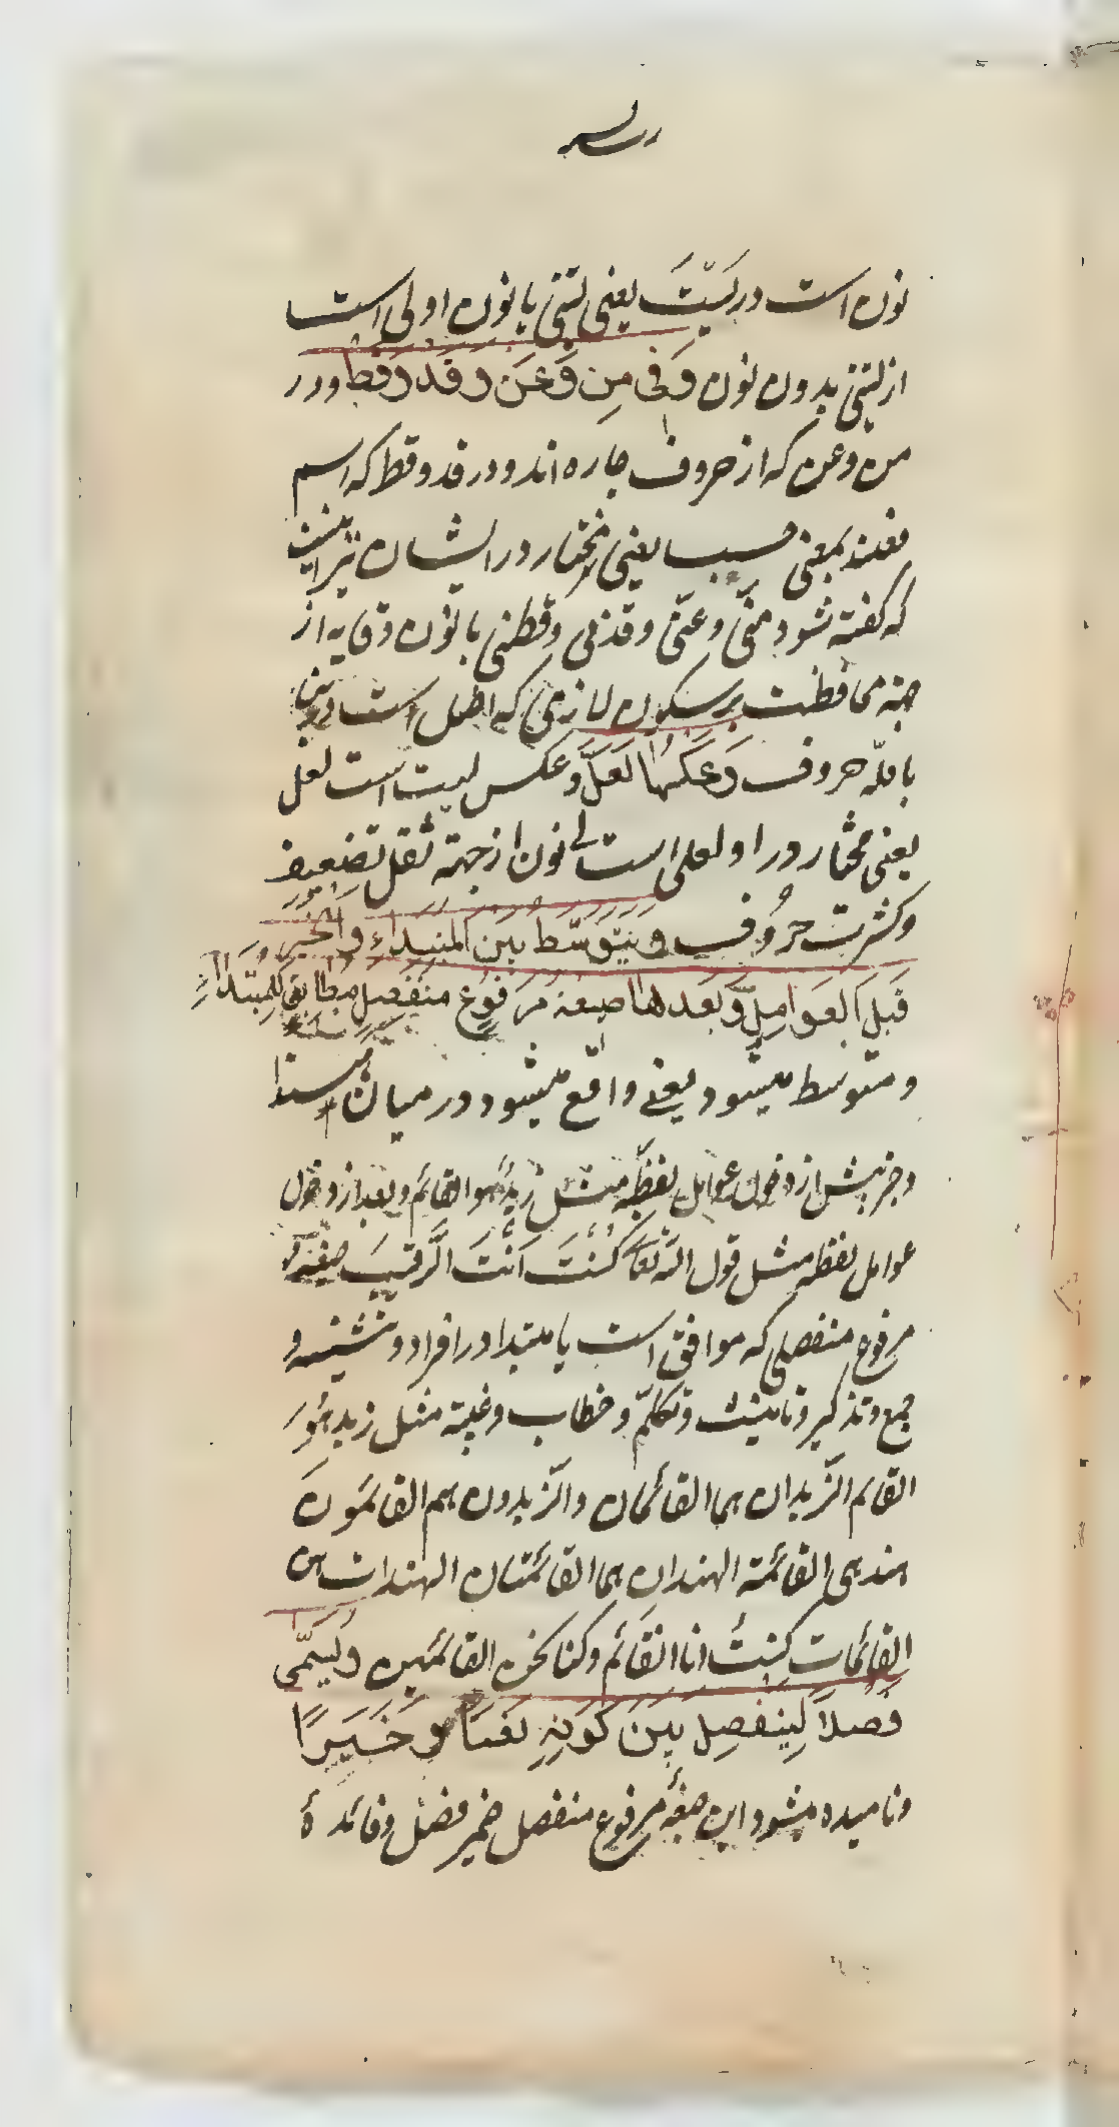 نون است در لَیْتَ یعنی لیتنی با نون اولی است
از لیتی بدون نون وَ فی مِن وَ عَن وَ قَد وَ قَط و در
من و عن که از حروف جاره اند و در قد و قط که اسم
فعلند بمعنی حسب یعنی مختار در ایشان نیز اینست
که گفته شود منّی و عنّی و قدنی و قطنی با نون وقایه از
جهة محافظت بر سکون لازمی که اصل است در
با قلّه حروف وَ عَکسُها لَعَلَّ و عکس لیت است لعل
یعنی مختار در او لعلی است بی نون از جهة ثقل تضعیف
و کثرت حروف وَ یَتَوَسَّطُ بَینَ المُبتَداءِ وَ الخَبَرِ
قَبلَ العَوامِلِ وَ بَعدَها صیغة مَرفُوعٍ مُنفَصِلٍ مُطابِقٍ لِلمُبتَداءِ
و متوسط میشود یعنی واقع میشود در میان مبتدا
و خبر پیش از دخول عوامل لفظیّه مثل زیدٌ هو القائم و بعد از دخول
عوامل لفظیه مثل قول الله تعا کُنتَ اَنتَ الرَّقیبَ صیغه
مرفوع منفصلی که موافق است با مبتدا در افراد و تثنیه و
جمع و تذکیر و تانیث و تکلّم و خطاب و غیبة مثل زید هُوَ
القائم الزّیدان هما القائمان و الزّیدون هم القائمون
هند هی القائمة الهندان هما القائمتان الهندات هن
القائمات کنتُ انا القائم و کنا نحن القائمین وَ یُسَمّی
فَصلاً لِیَفصِلَ بَینَ کَونِهِ نَعتاً وَ خَبَراً
و نامیده میشود این صیغهٔ مرفوع منفصل ضمیر فصل و فائدهٔ